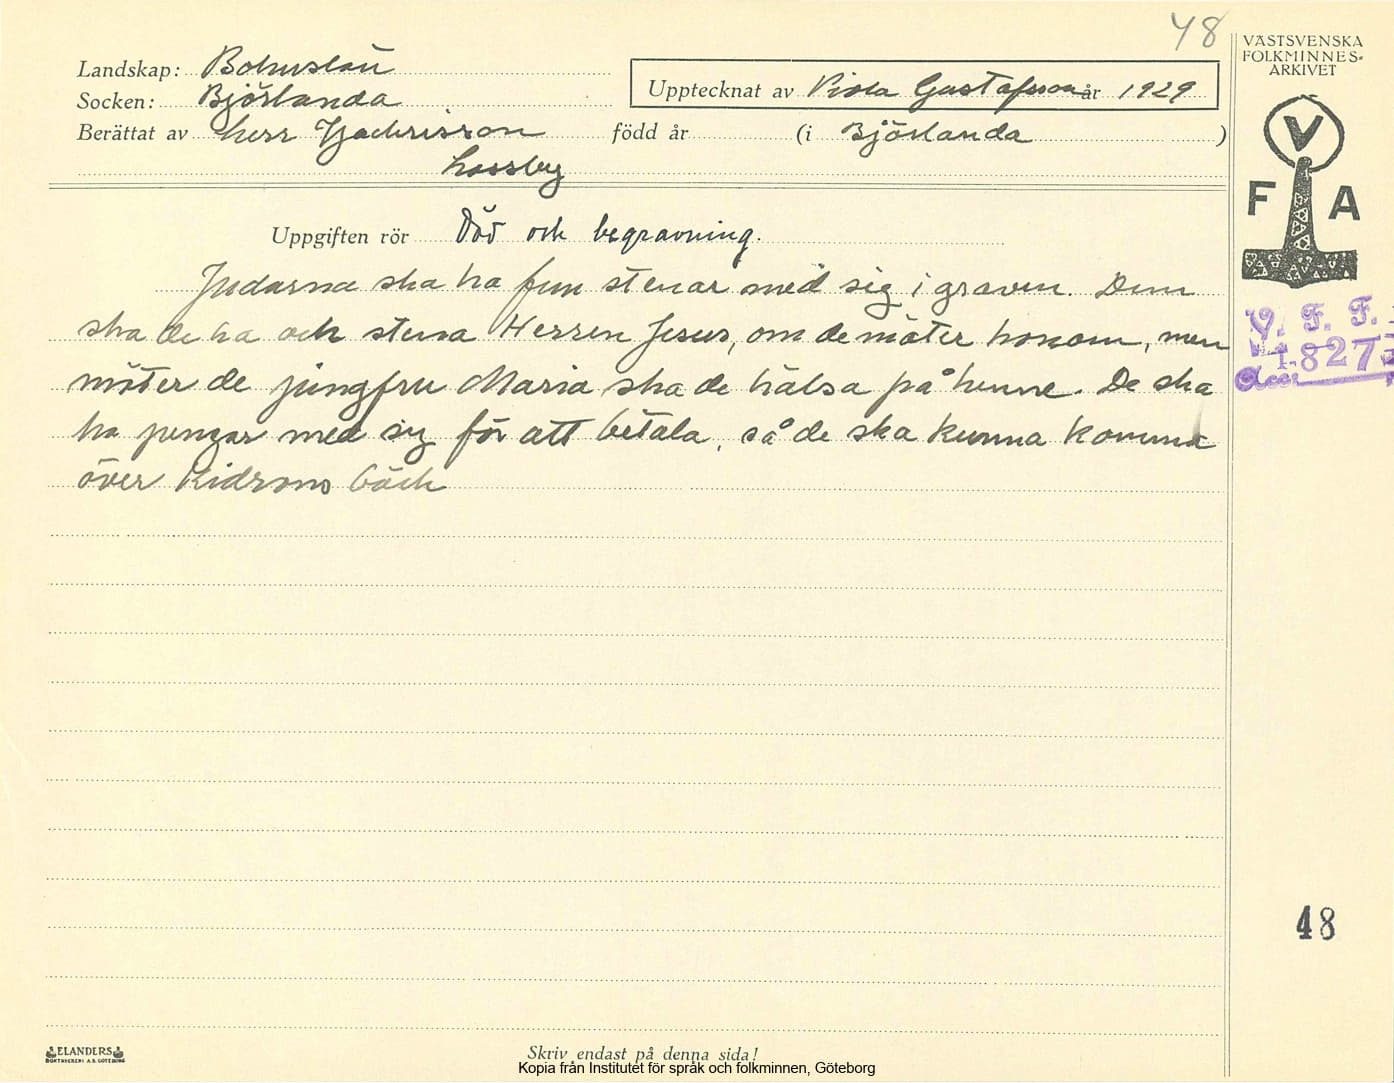 48
VÄSTSVENSKA
FOLKMINNES-
ARKIVET
Landskap: Bohuslän
Socken: Björlanda
Upptecknat av Viola Gustafsson år 1929
Berättat av herr Zachrisson född år (i Björlanda )
Lossby
V
F A
Uppgiften rör Död och begravning.
Judarna ska ha fem stenar med sig i graven. Dem
ska de ha och stena Herren Jesus, om de möter honom, men
möter de jungfru Maria ska de hälsa på henne. De ska
ha pengar med sig för att betala, så de ska kunna komma
över Kidrons bäck
V. F. F.
1827
Acc
48
ELANDERS
BOKTRYCKERI A.B. GÖTEBORG
Skriv endast på denna sida!
Kopia från Institutet för språk och folkminnen, Göteborg